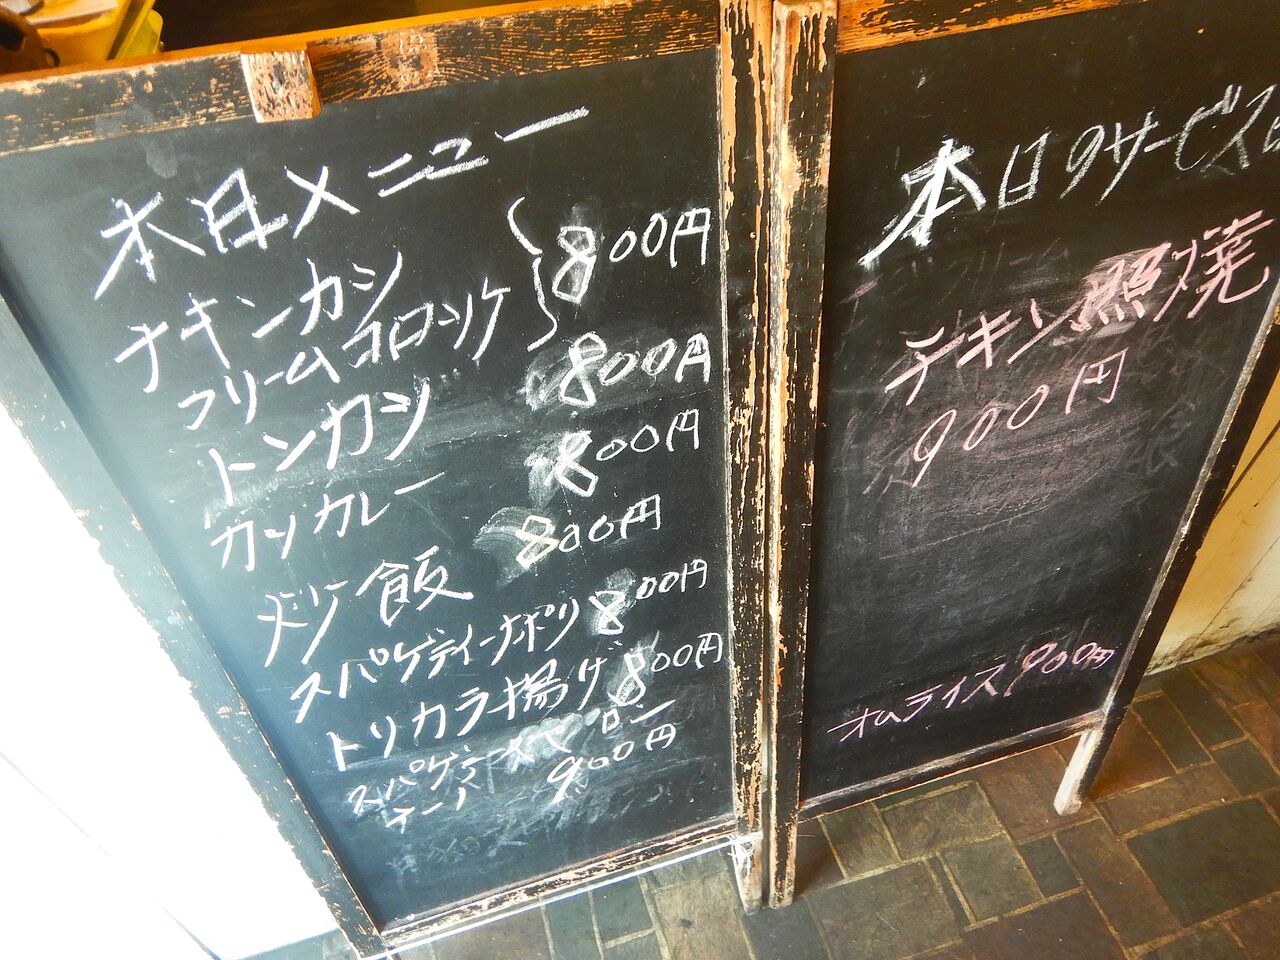 本日メニュー
チキンカツ
クリームコロッケ
800円
トンカツ 800円
カツカレー 800円
ドリア飯 800円
スパゲティーナポリ 800円
トリカラ揚げ 800円
スパゲティー
900円
本日のサービス
チキン照焼
900円
オムライス900円